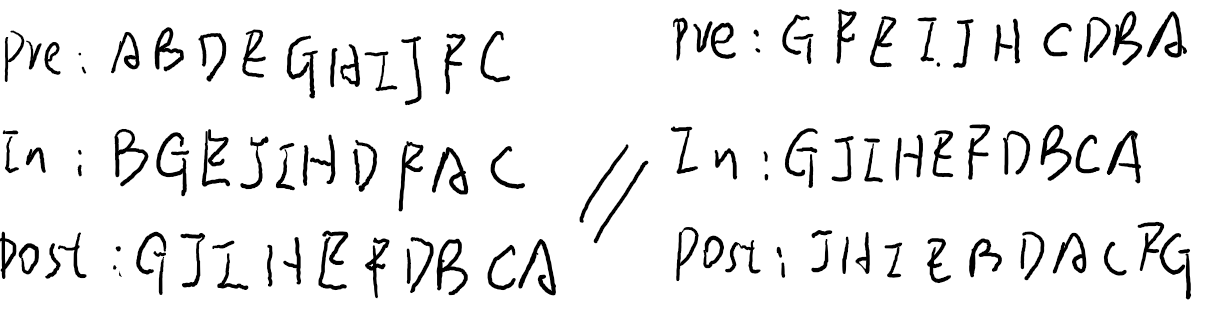 Pre: ABDEGHIJFC
In: BGEJIHDFAC
Post: GJIHEFDBCA
//
Pre: GFEIJHCDBA
In: GJIHEFDBCA
Post: JHIEBDACFG